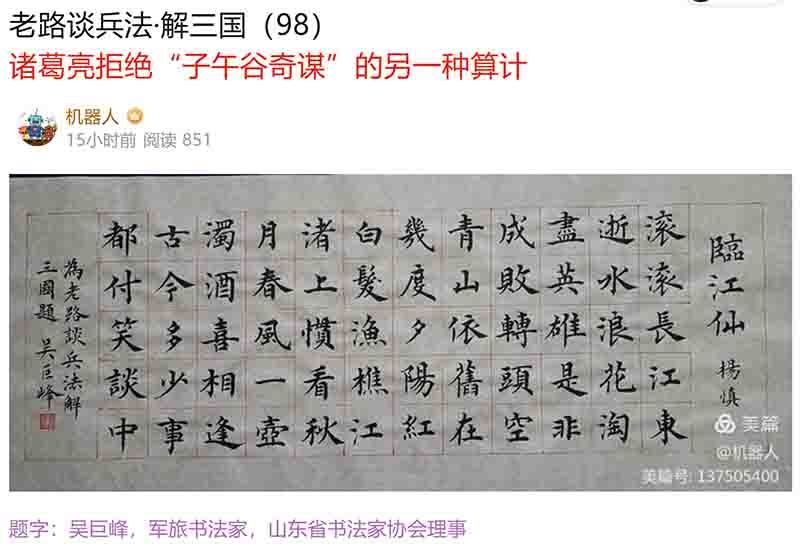 老路谈兵法·解三国（98）
诸葛亮拒绝“子午谷奇谋”的另一种算计
机器人
15小时前 阅读 851
臨江仙 楊慎
滚滚長江東
逝水浪花淘
盡英雄是非
成敗轉頭空
青山依舊在
幾度夕陽紅
白髮漁樵江
渚上慣看秋
月春風一壺
濁酒喜相逢
古今多少事
都付笑談中
為老路談兵法解
三國題 吴巨峰
美篇
@机器人
美篇号: 137505400
题字：吴巨峰，军旅书法家，山东省书法家协会理事